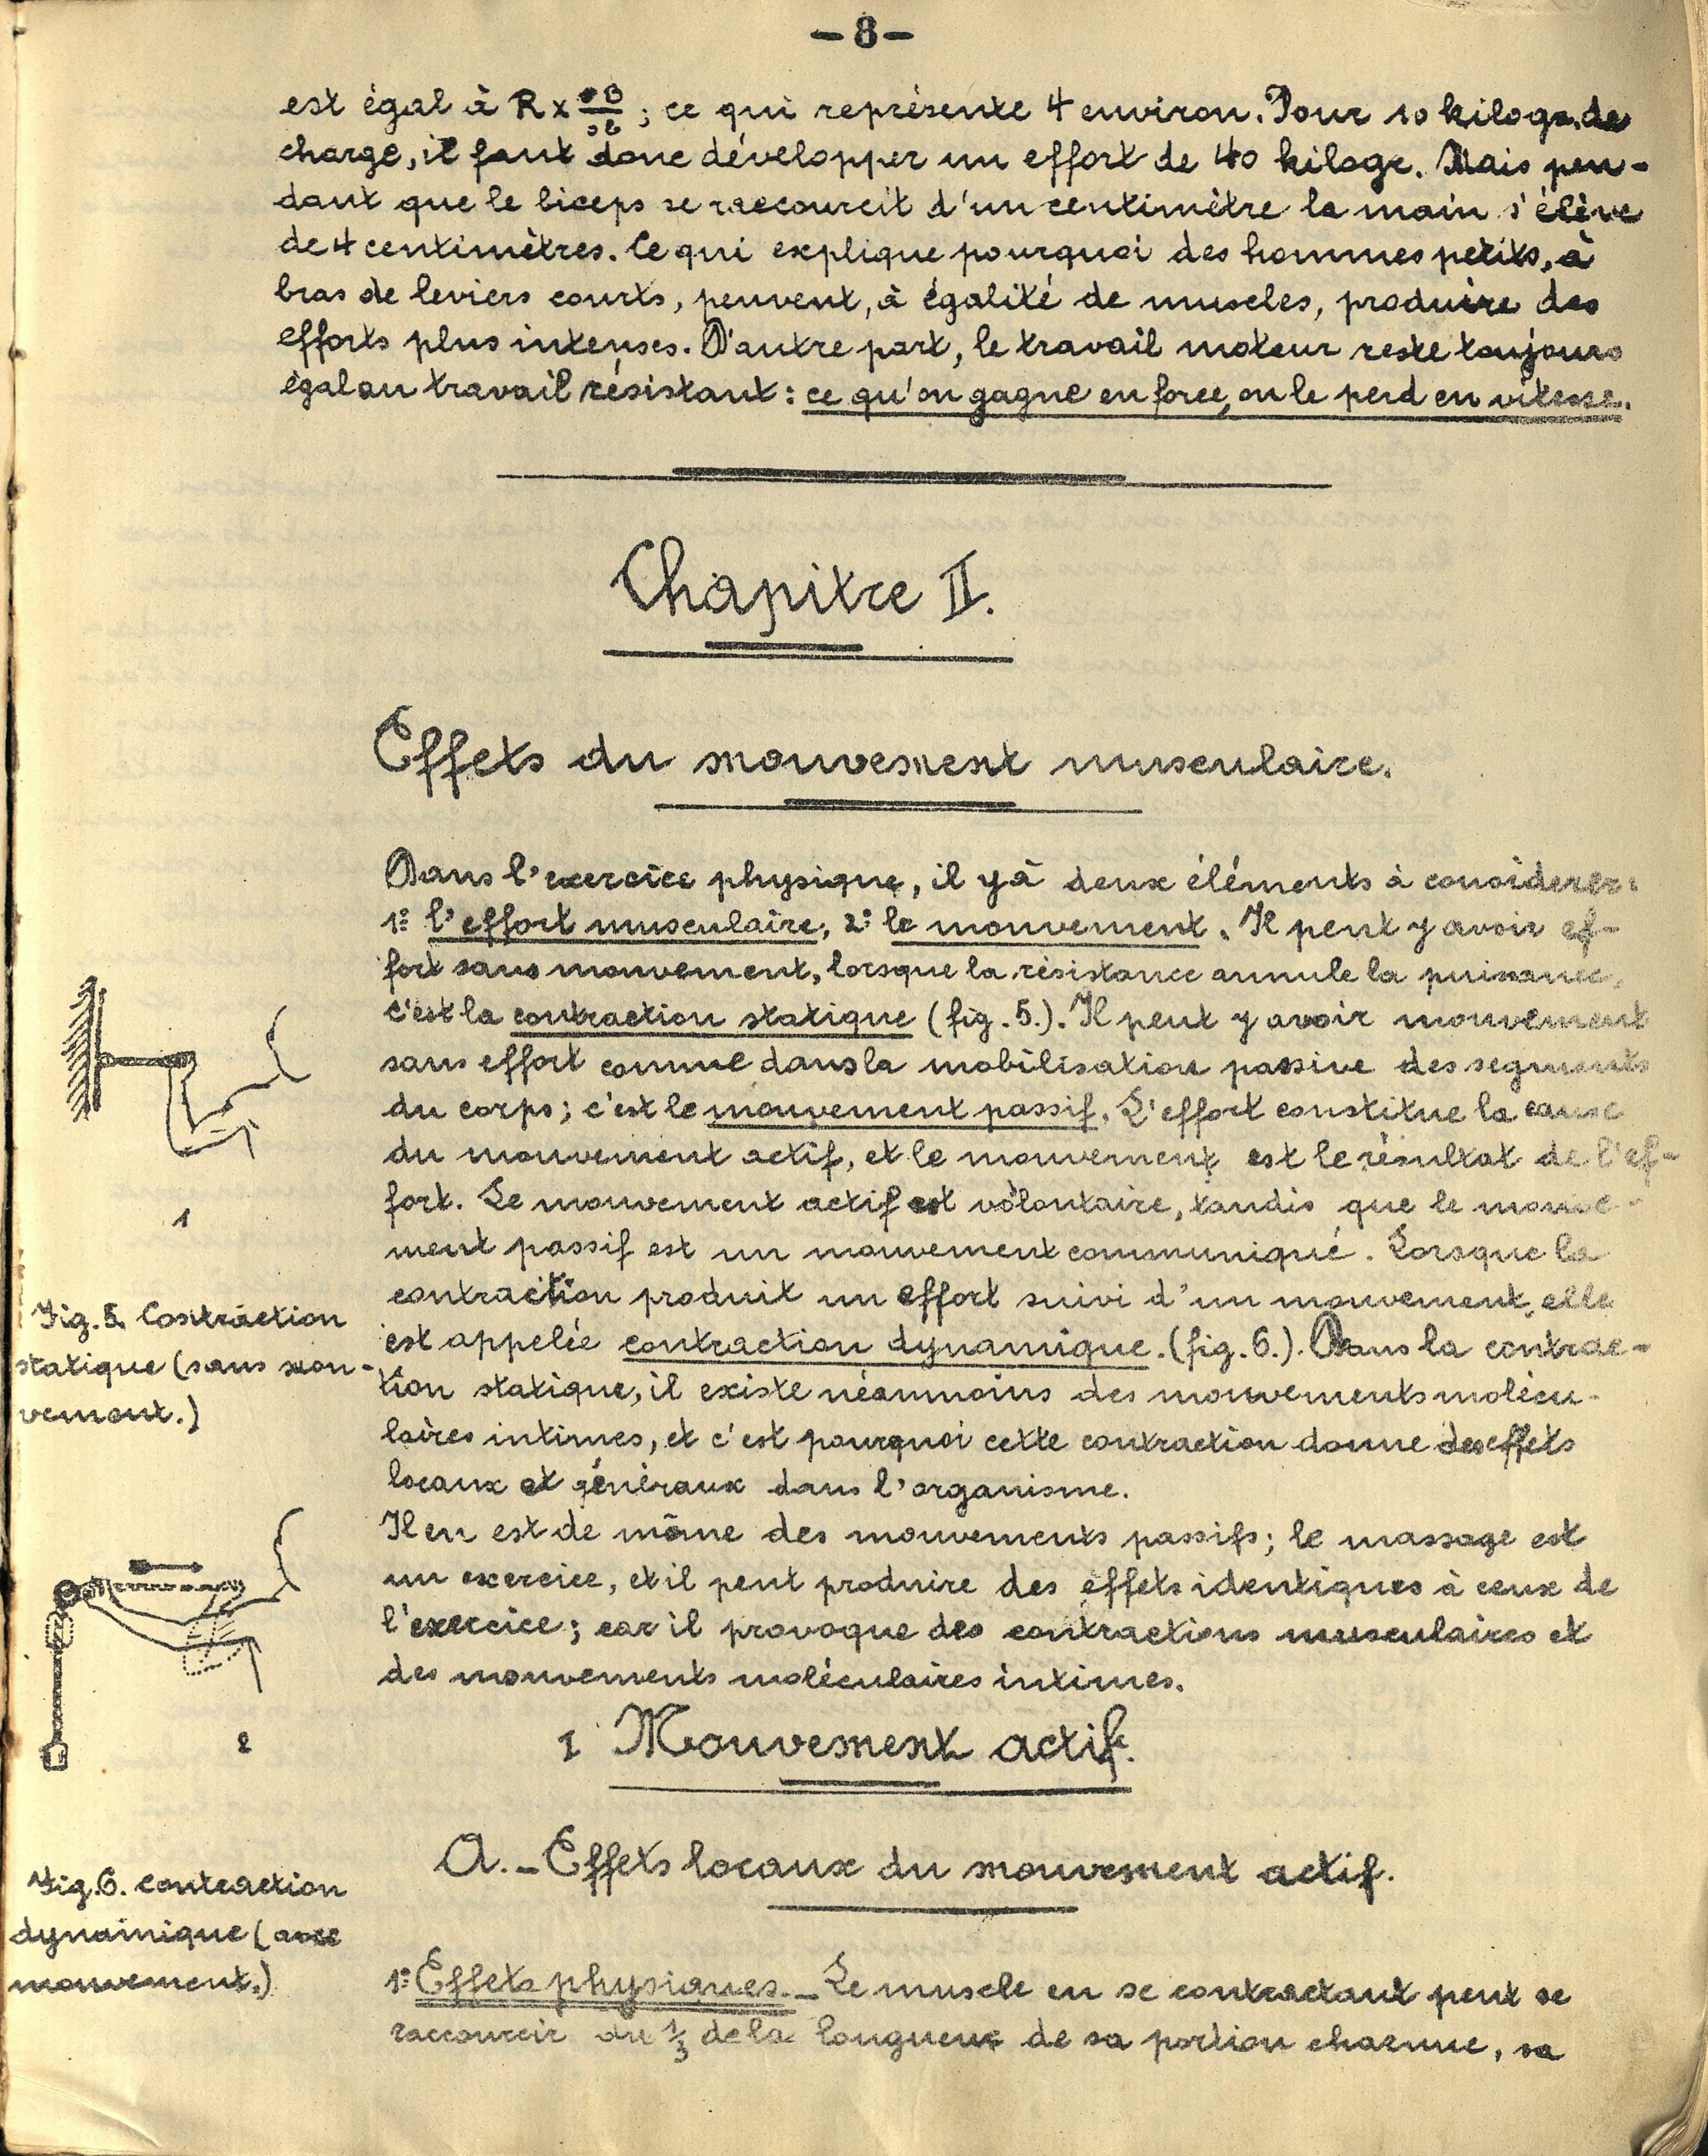 -8-
est égal à R x oB/ob ; ce qui représente 4 environ. Pour 10 kilogr. de
charge, il faut donc développer un effort de 40 kilogr. Mais pen-
dant que le biceps se raccourcit d'un centimètre la main s'élève
de 4 centimètres. Ce qui explique pourquoi des hommes petits, à
bras de leviers courts, peuvent, à égalité de muscles, produire des
efforts plus intenses. D'autre part, le travail moteur reste toujours
égal au travail résistant : ce qu'on gagne en force, on le perd en vitesse.
Chapitre II.
Effets du mouvement musculaire.
Dans l'exercice physique, il y a deux éléments à considérer :
1º l'effort musculaire, 2º le mouvement. Il peut y avoir ef-
fort sans mouvement, lorsque la résistance annule la puissance,
c'est la contraction statique (fig. 5.). Il peut y avoir mouvement
sans effort comme dans la mobilisation passive des segments
du corps ; c'est le mouvement passif. L'effort constitue la cause
du mouvement actif, et le mouvement est le résultat de l'ef-
fort. Le mouvement actif est volontaire, tandis que le mouve-
ment passif est un mouvement communiqué. Lorsque la
contraction produit un effort suivi d'un mouvement, elle
est appelée contraction dynamique. (fig. 6.). Dans la contrac-
tion statique, il existe néanmoins des mouvements molécu-
laires intimes, et c'est pourquoi cette contraction donne des effets
locaux et généraux dans l'organisme.
Il en est de même des mouvements passifs ; le massage est
un exercice, et il peut produire des effets identiques à ceux de
l'exercice ; car il provoque des contractions musculaires et
des mouvements moléculaires intimes.
1
Fig. 5. Contraction
statique (sans mou-
vement.)
2
Fig. 6. contraction
dynamique (avec
mouvement.)
I Mouvement actif.
A. - Effets locaux du mouvement actif.
1º Effets physiques. - Le muscle en se contractant peut se
raccourcir du 1/3 de la longueur de sa portion charnue, sa